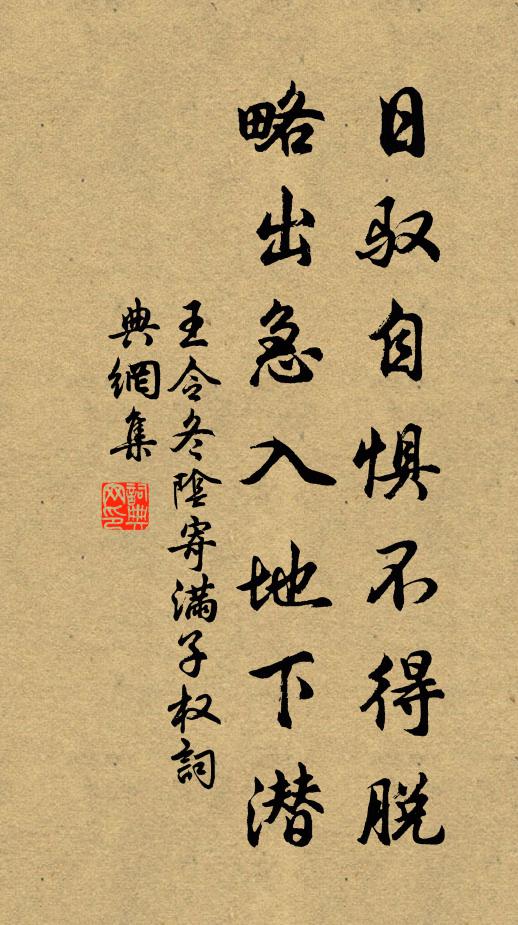 日驭自惧不得脱
略出急入地下潜
王令冬陰寄滿子权詞
典網集
詞典
网印